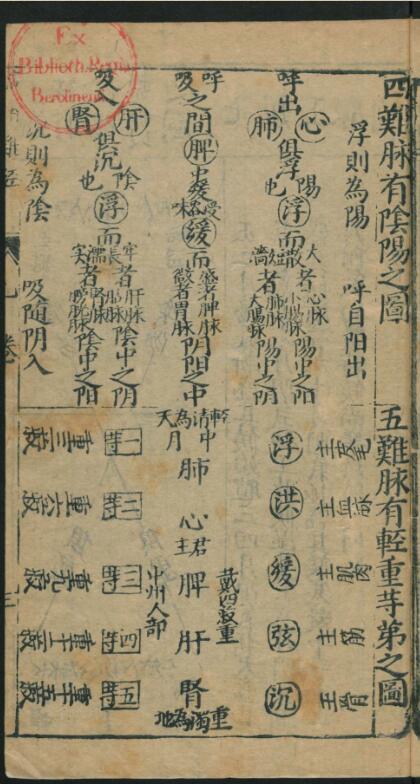 四難脉有陰陽之圖
浮則為陽 呼自阳出
呼出
心
肺
俱浮
陽也
浮
而
大散者心脉
短濇者肺脉
陽中之阳
呼吸之間
脾
受穀味
緩
而
阴阳之中
吸入
肝
腎
俱沉
陰也
浮
而
牢長者肝脉
陰中之阳
陰中之阴
沉則為陰 吸随阴入
五難脉有輕重等第之圖
主皮毛
主血脉
主肌肉
主筋
主骨
浮
洪
緩
弦
沉
輕清為天
肺
心
君主
脾
肝
腎
重濁為地
中州人部
一等
二等
三等
四等
五等
重三菽
重六菽
重九菽
重十二菽
重十五菽
Ex
Biblioth. Regia
Berolinensi